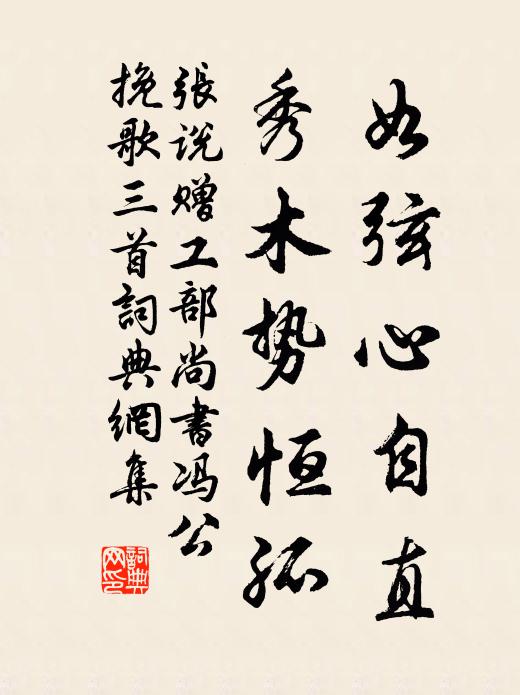 如弦心自直
秀木势恒孤
張説贈工部尚書冯公
挽歌三首詞典網集
詞典
网印